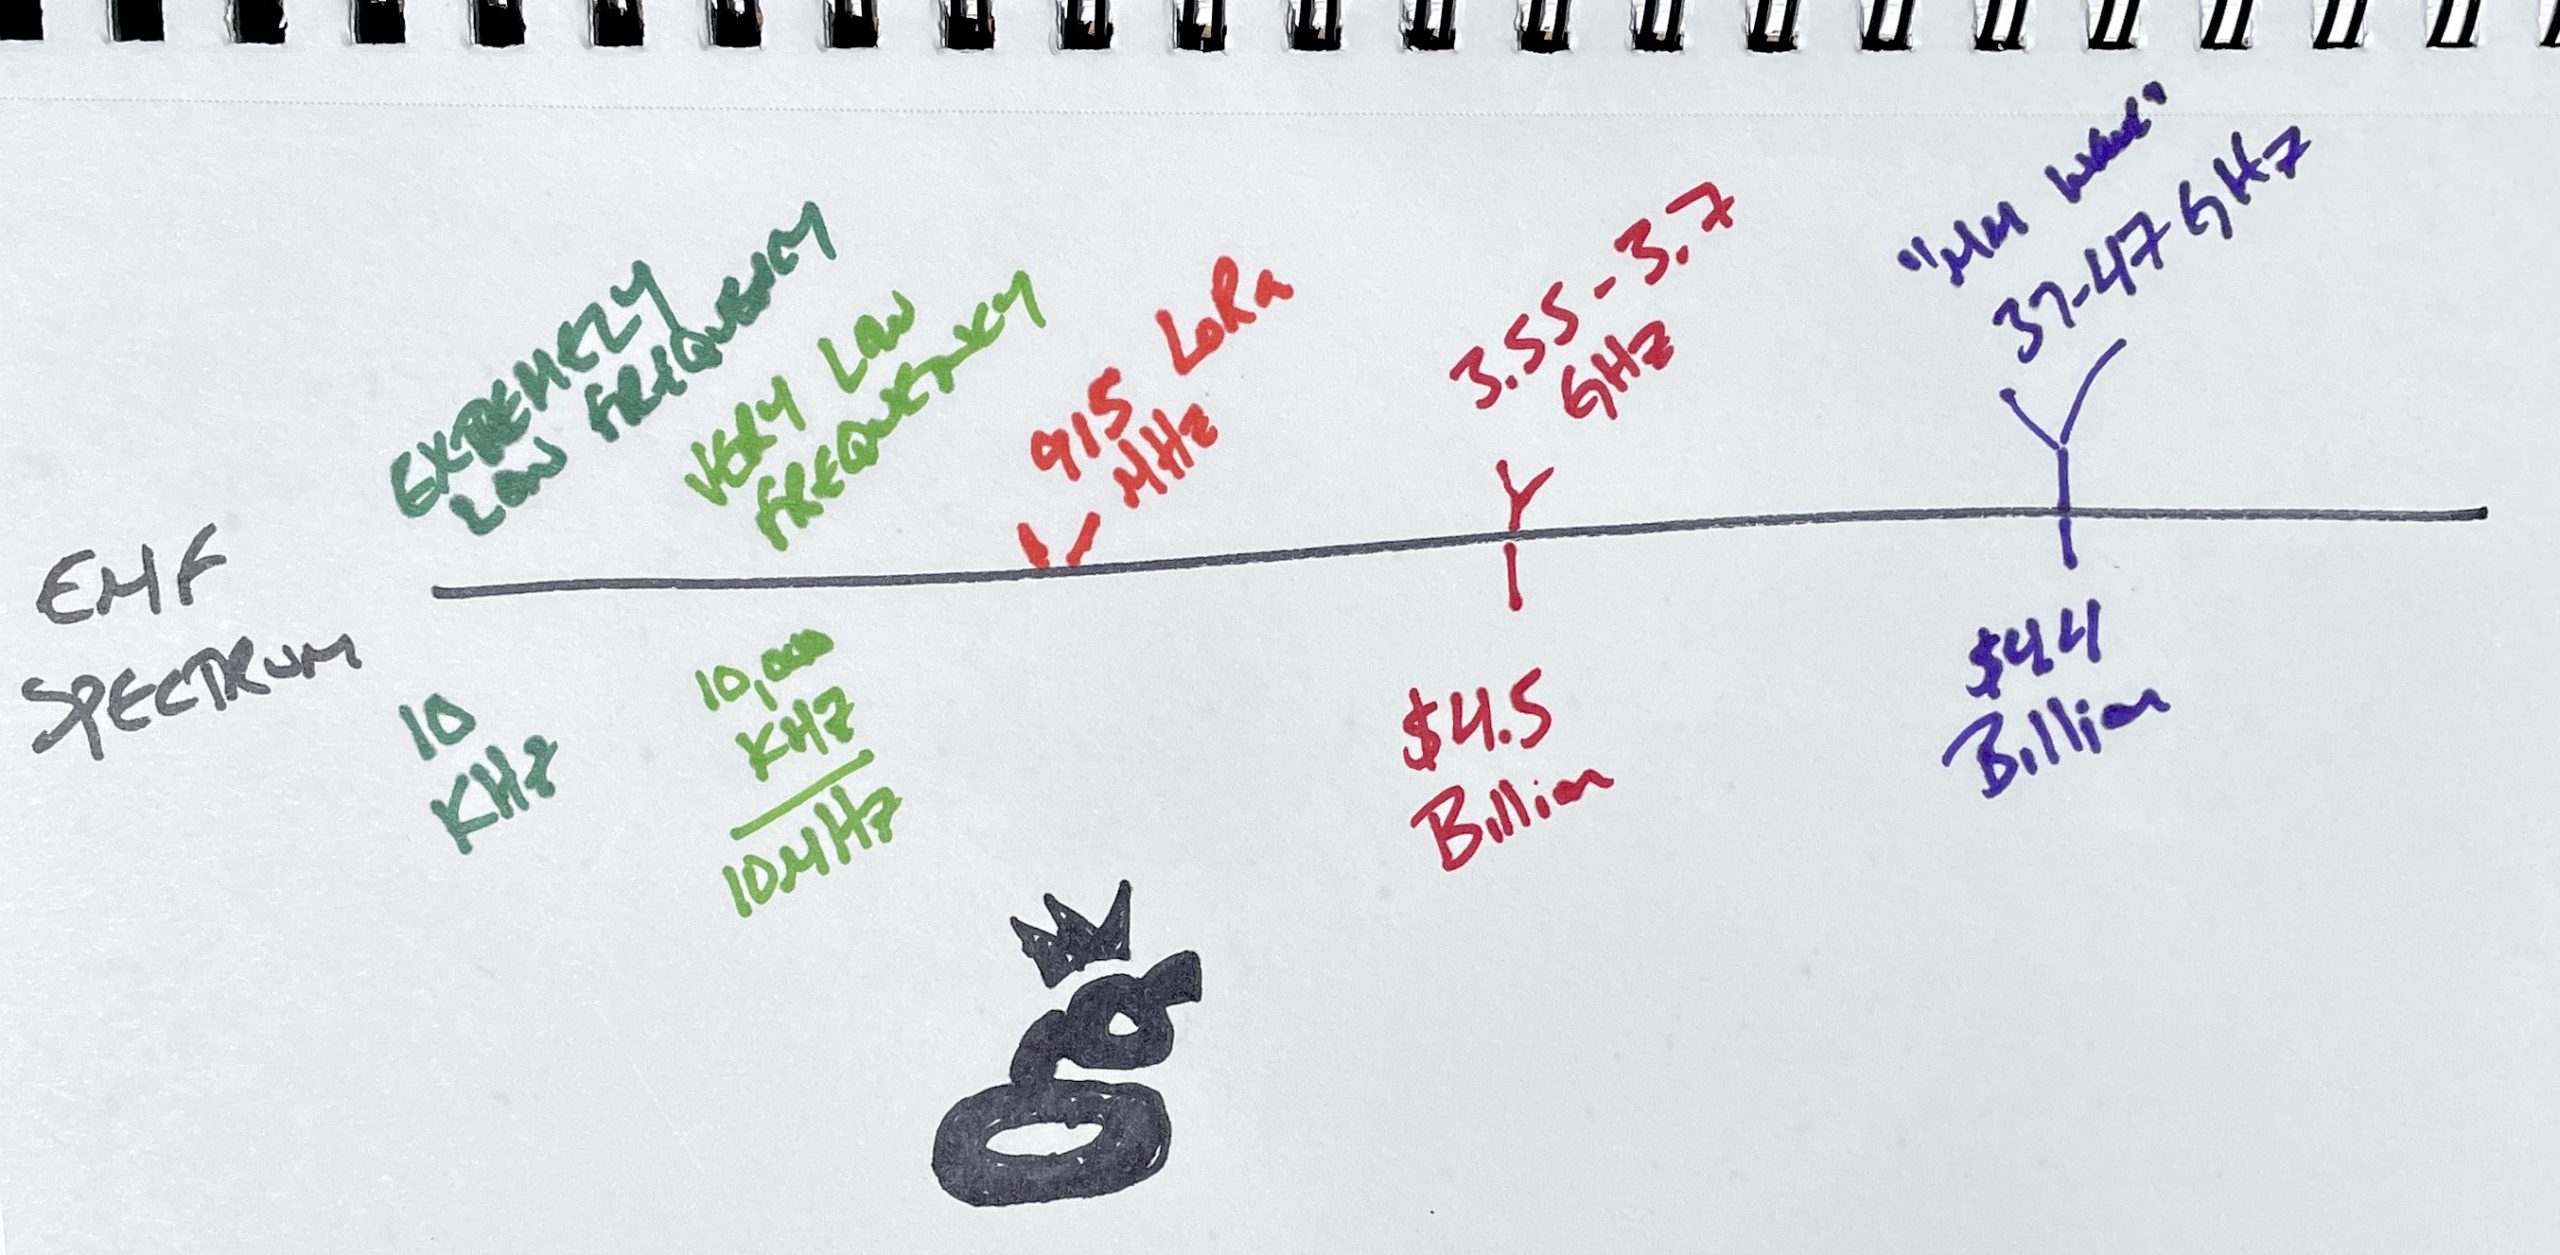 EXTREMELY
LOW FREQUENCY
VERY LOW
FREQUENCY
915 LoRa
MHz
3.55-3.7
GHz
"MM Wave"
37-47 GHz
EMF
SPECTRUM
10
KHz
10,000
KHz
10MHz
$4.5
Billion
$4.4
Billion
g